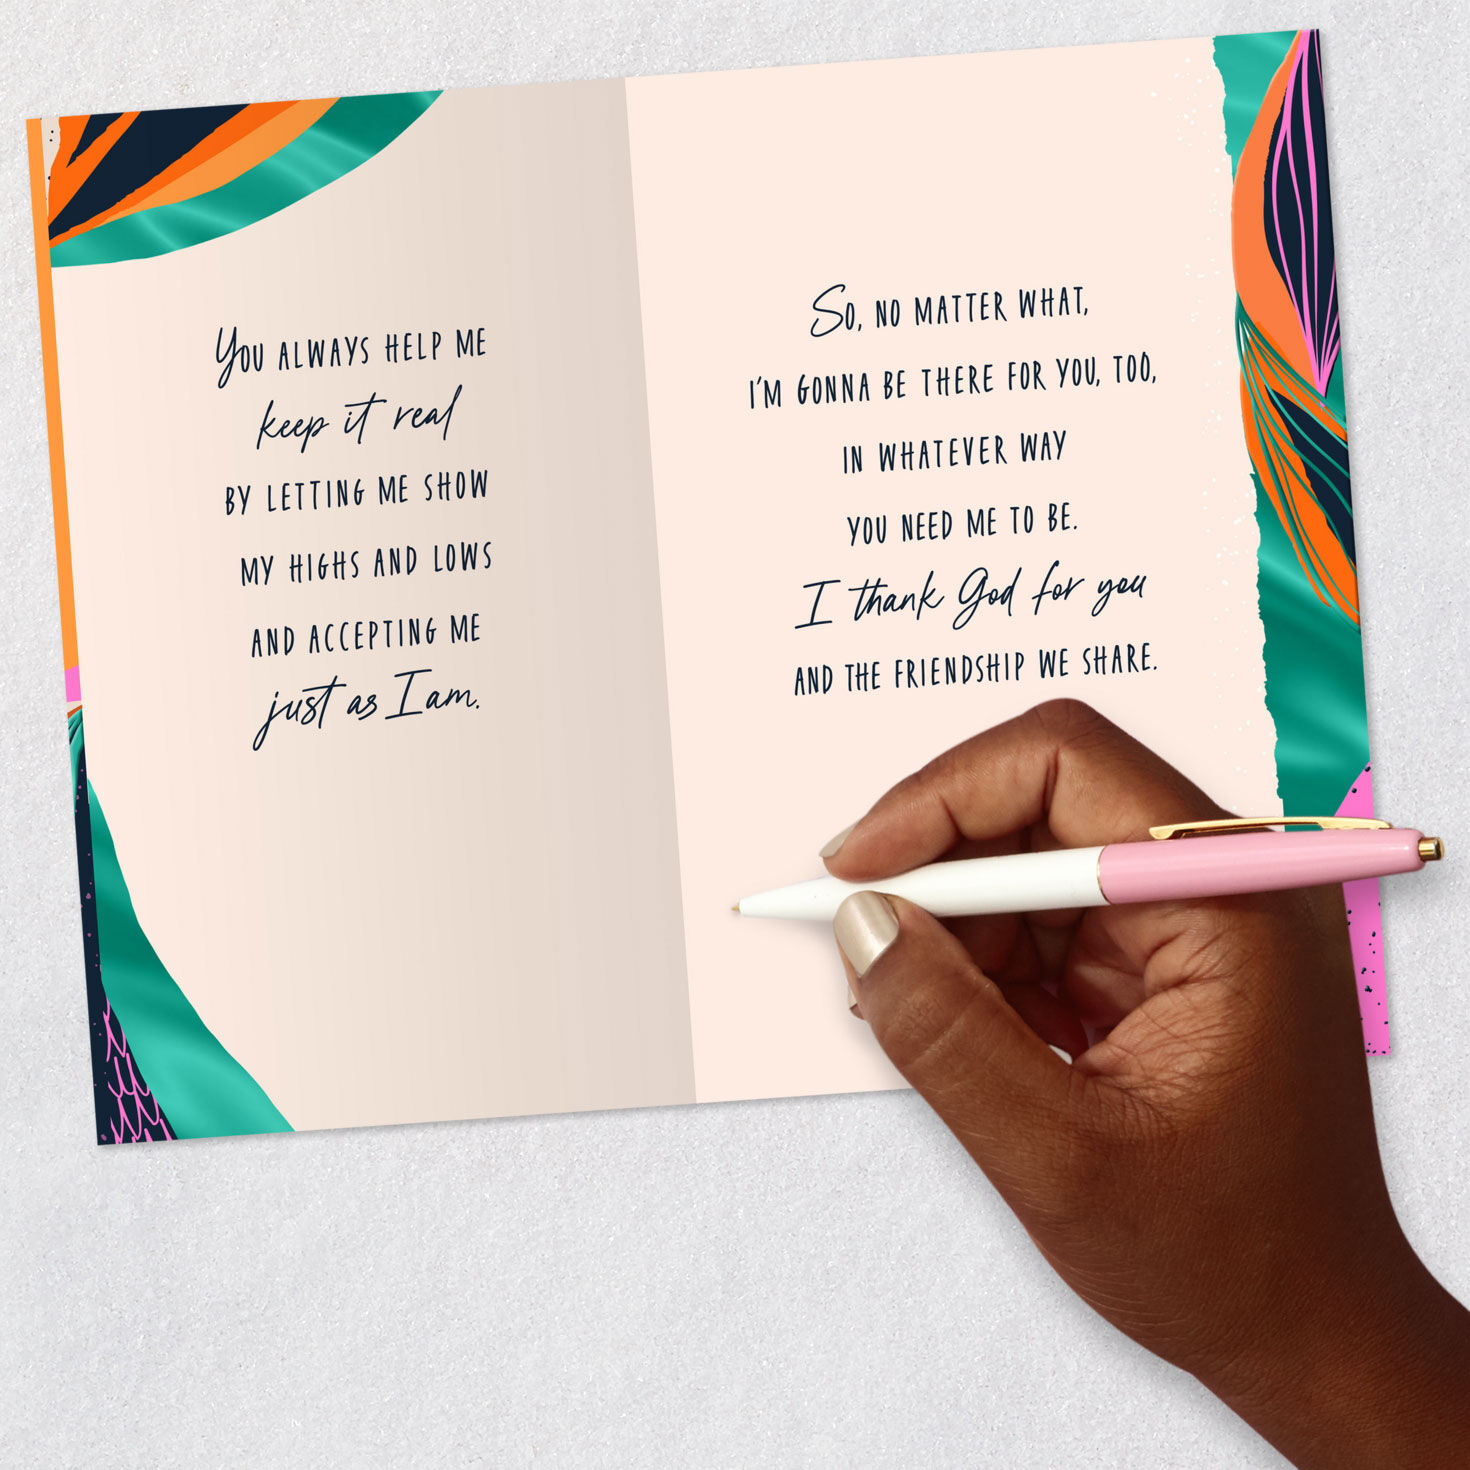 You ALWAYS HELP ME
keep it real
BY LETTING ME SHOW
MY HIGHS AND LOWS
AND ACCEPTING ME
just as I am.
So, NO MATTER WHAT,
I'M GONNA BE THERE FOR YOU, TOO,
IN WHATEVER WAY
YOU NEED ME TO BE.
I thank God for you
AND THE FRIENDSHIP WE SHARE.